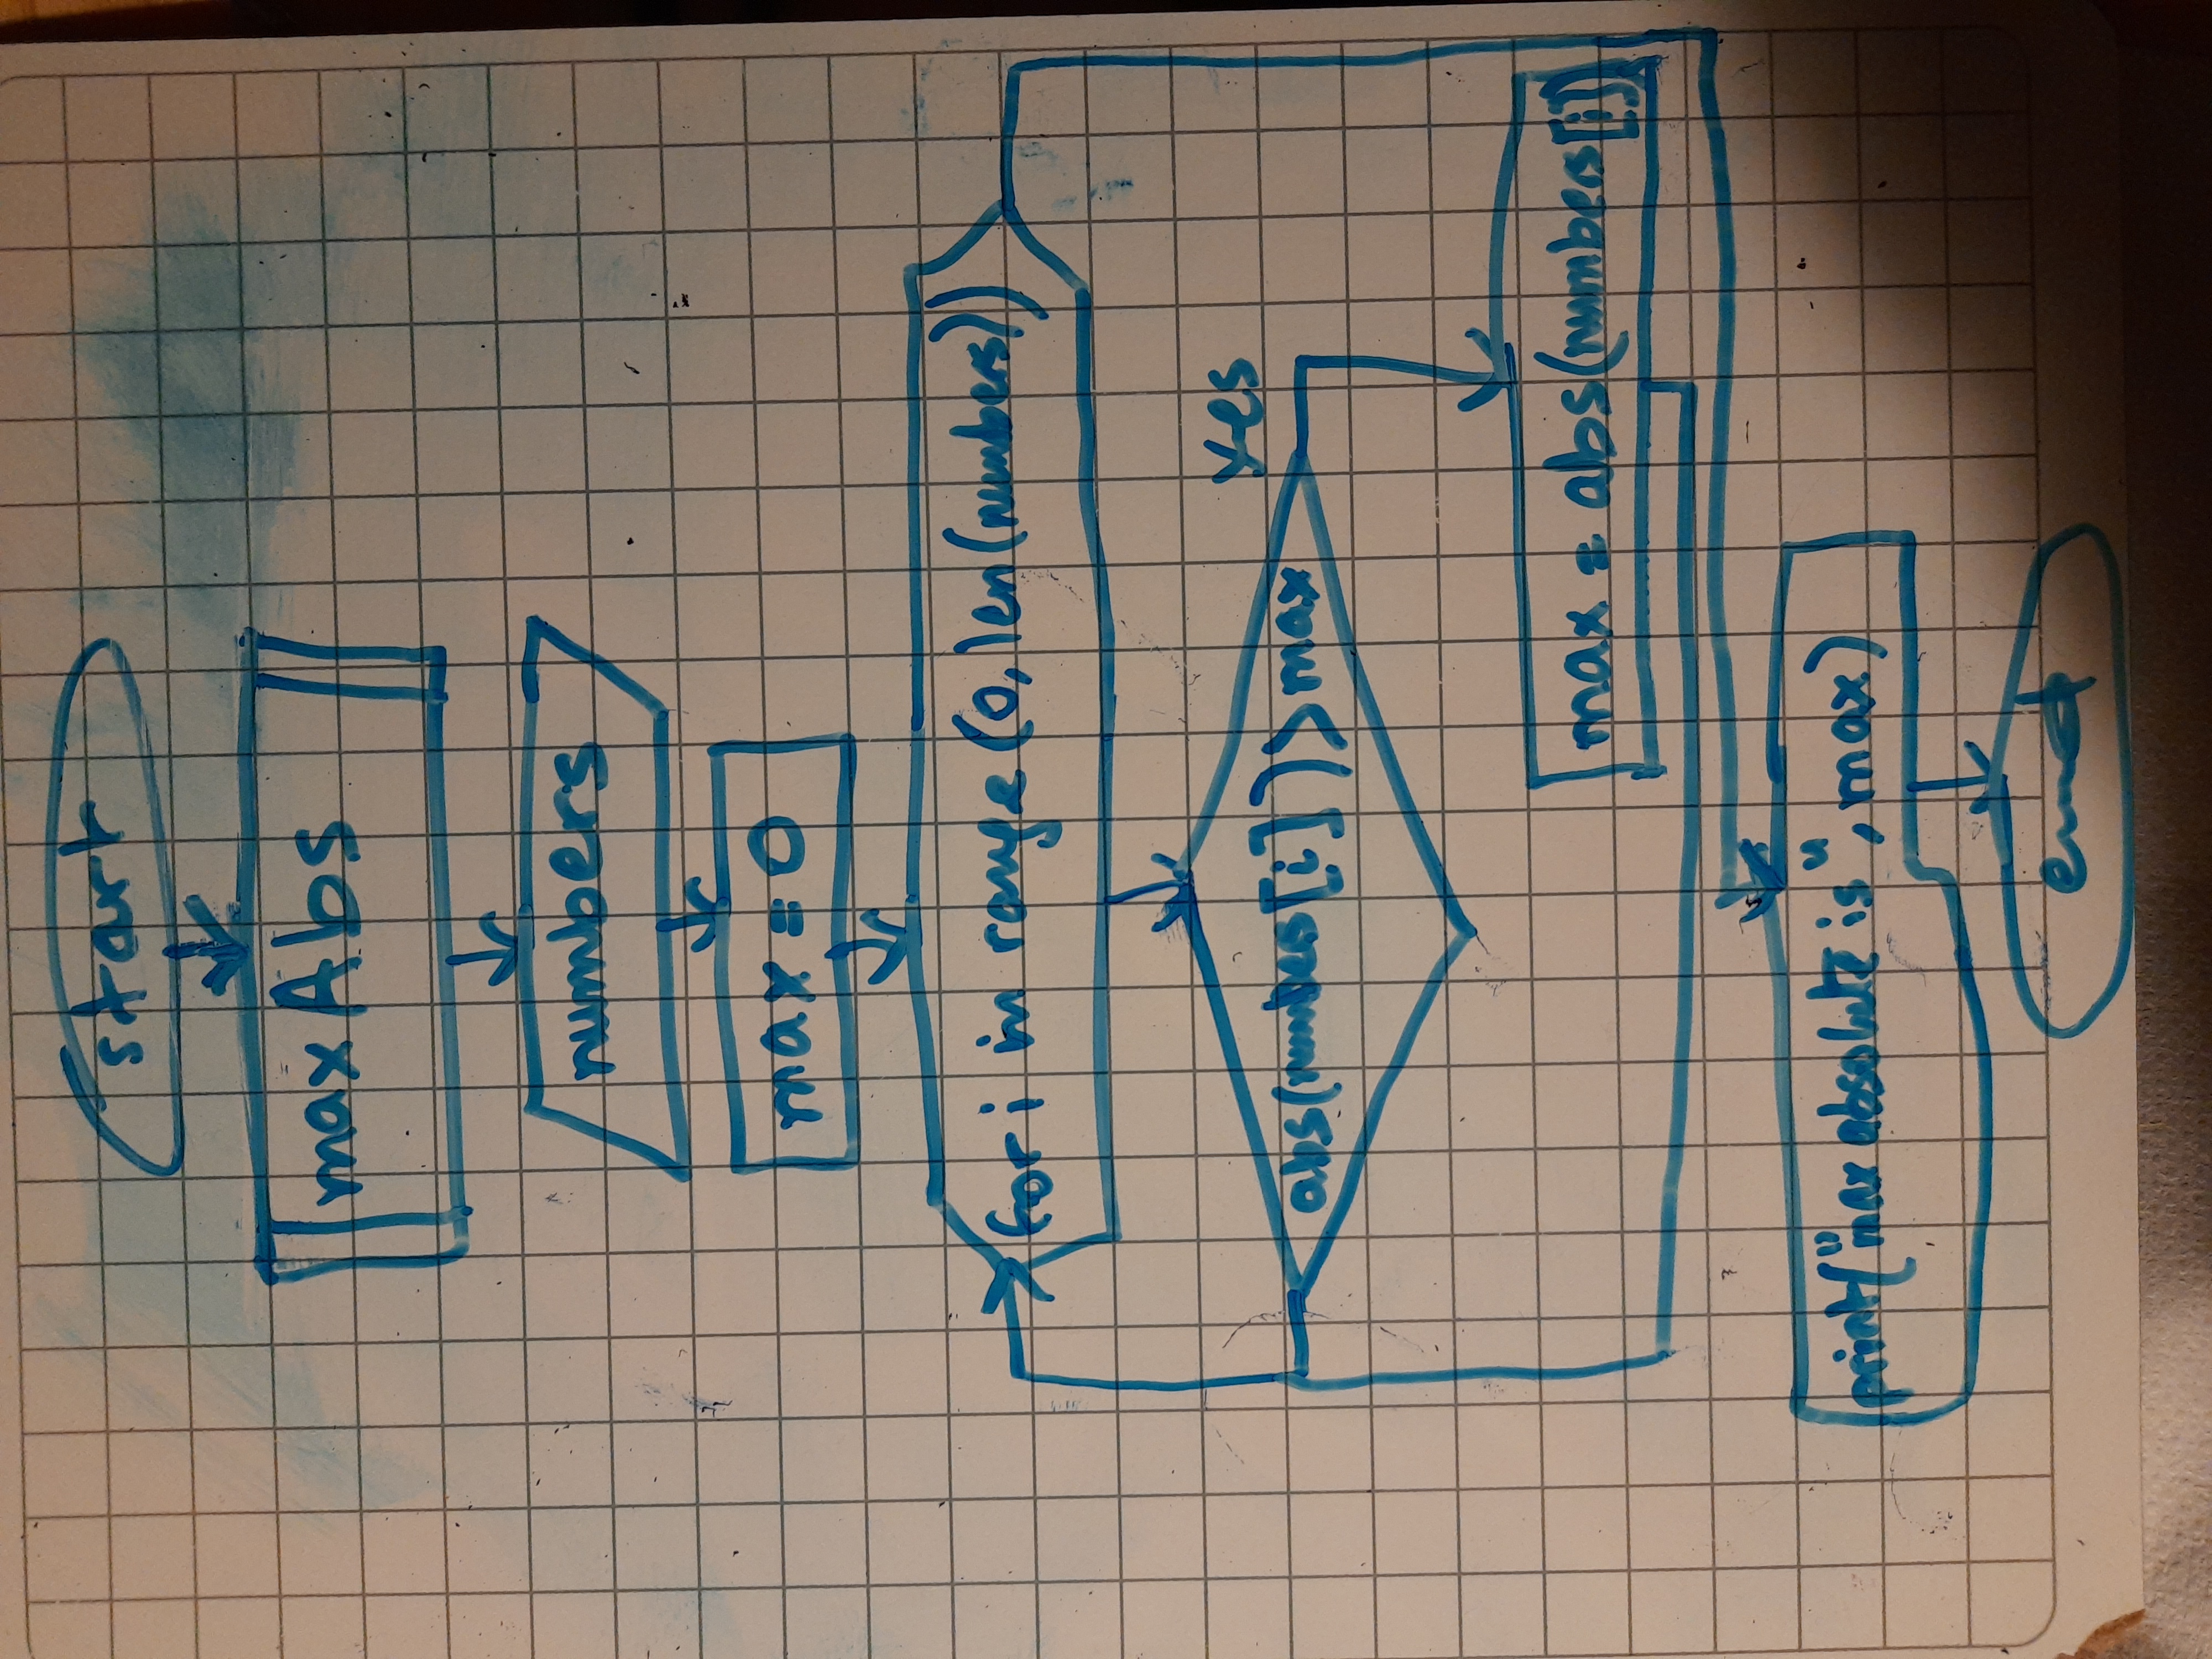 start
maxAbs
numbers
max = 0
for i in range (0, len(numbers))
yes
abs(numbers[i]) > max
max = abs(numbers[i])
print("max absolute is", max)
end